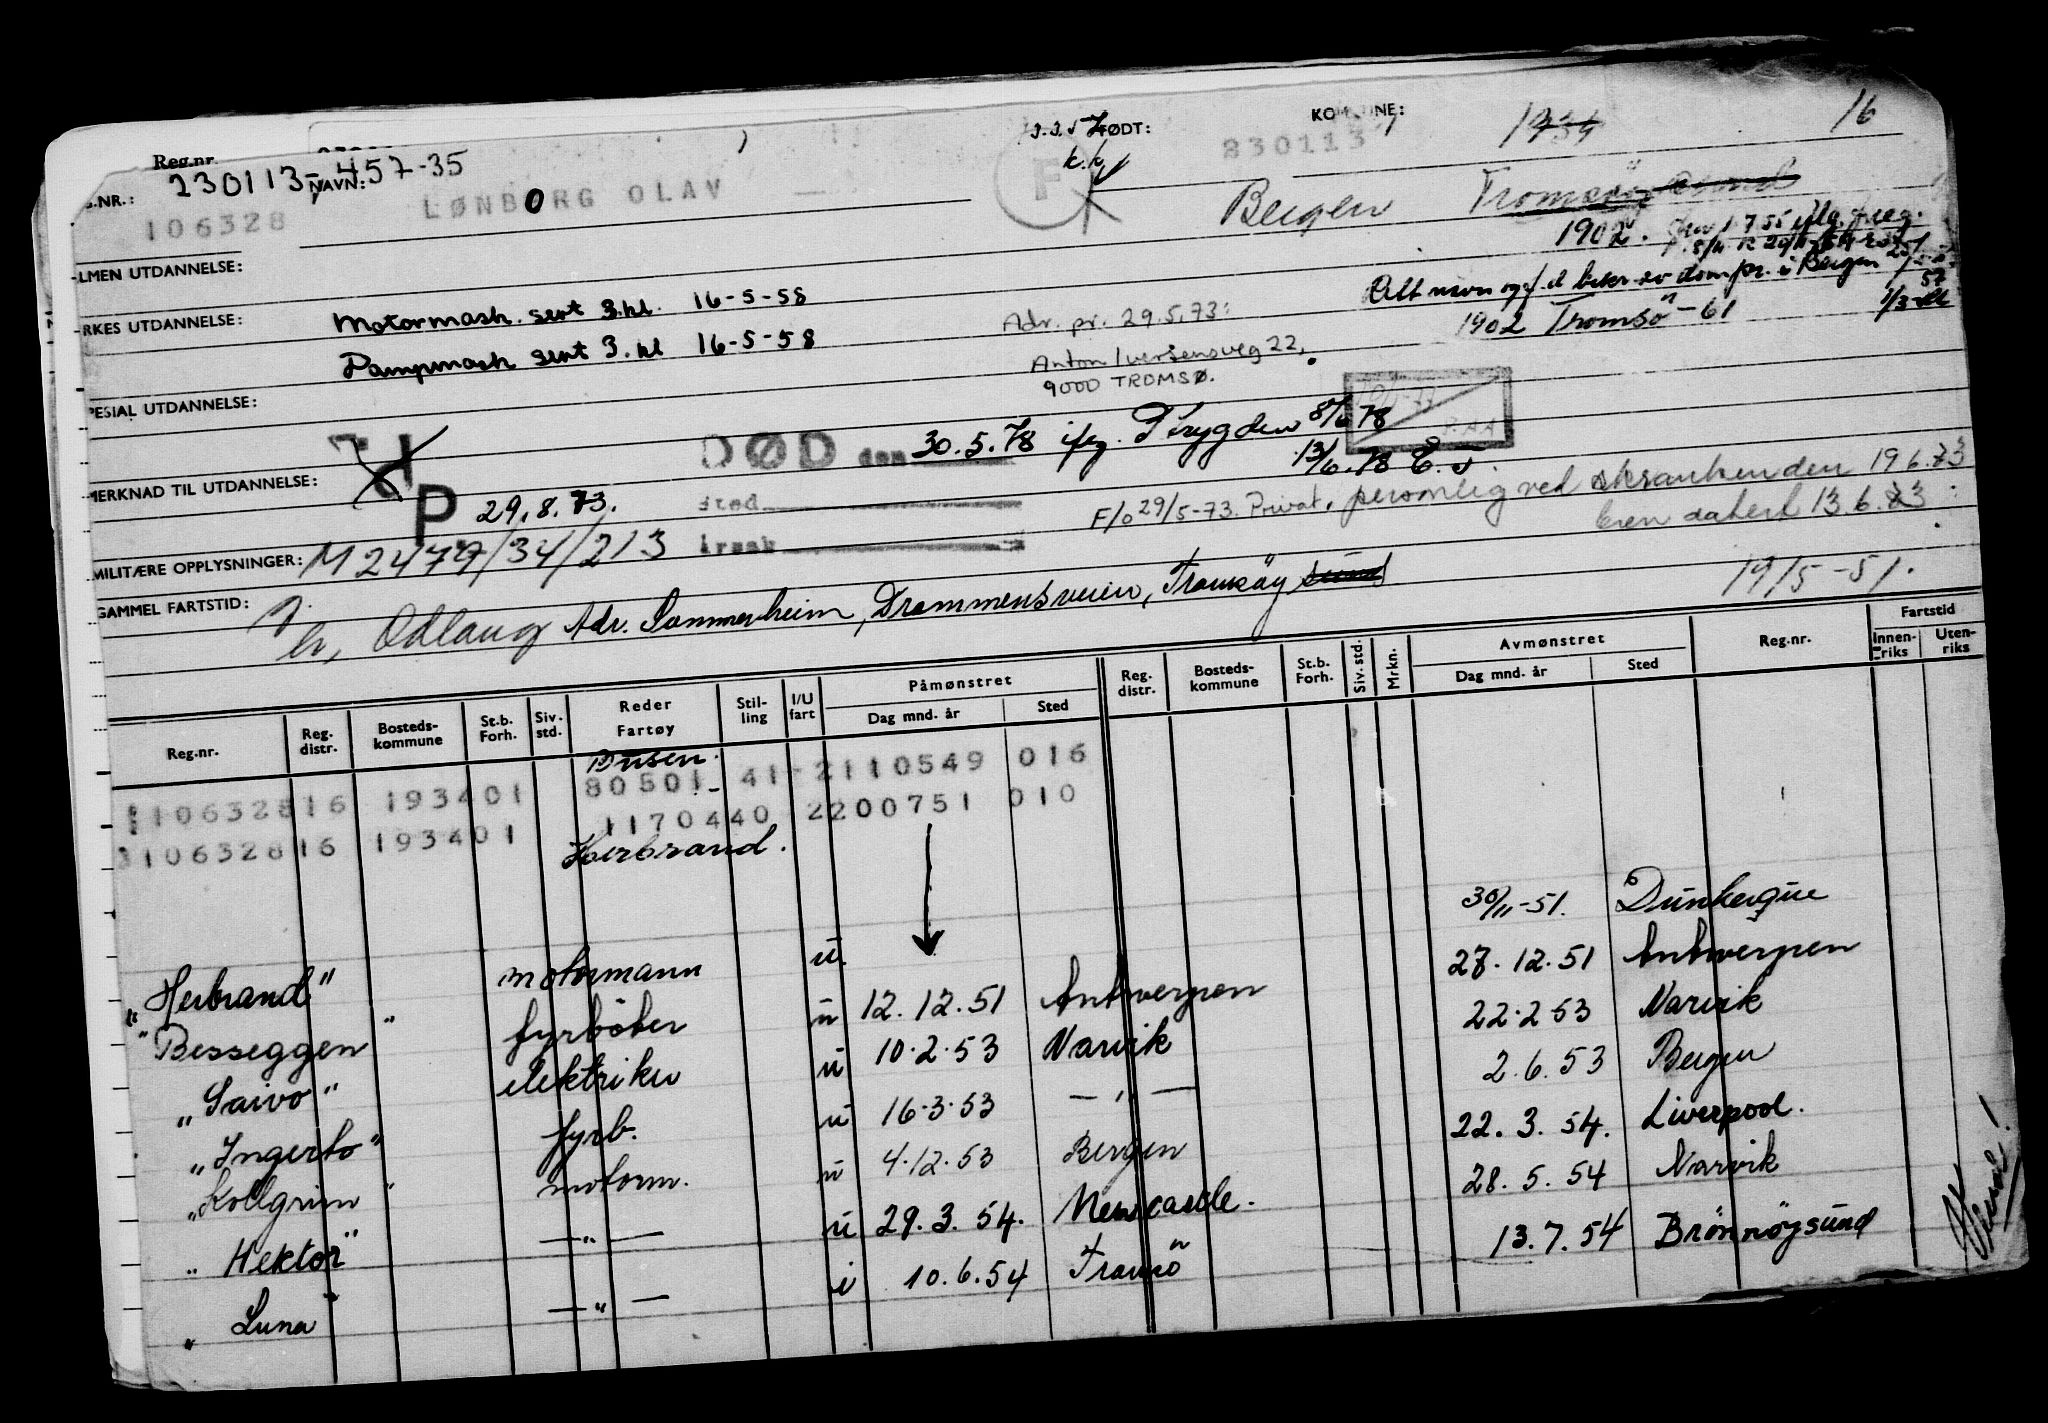 Reg.nr. 230113-457-35
NAVN: LØNBORG OLAV
FØDT: 830113
KOMMUNE: 1934 16
.NR.: 106328
F
k.k.
Bergen Tromsöysund
1902.
LMEN UTDANNELSE:
Alt navn og f.d. bekr. av dompr. i Bergen
1902 Tromsö -61
RKES UTDANNELSE: Motormask. sert 3.kl. 16-5-58
Dampmask sert 3.kl 16-5-58
Adr. pr. 29.5.73:
Anton Iversensveg 22,
9000 TROMSØ.
PESIAL UTDANNELSE:
DØD den 30.5.78 ifg. Trygden 8/6 78
13/6.78 E.T.
MERKNAD TIL UTDANNELSE:
P 29.8.73.
sted
årsak
F/o 29/5-73. Privat, personlig ved skranken den 19 6.73
datert 13.6.73
MILITÆRE OPPLYSNINGER: M 2479/34/213
19/5-51.
GAMMEL FARTSTID:
h, Odlaug Adr. Sommerheim, Drammensveien, Tromsöysund
Reg.nr. Reg. distr. Bosteds-kommune St.b. Forh. Siv. std. Reder Fartøy Stil-ling I/U fart Påmønstret Dag mnd. år Sted Reg. distr. Bosteds-kommune St.b. Forh. Siv. std. Mrkn. Avmønstret Dag mnd. år Sted Reg.nr. Fartstid Innen-riks Uten-riks
10632816 193401 80501 41-2110549 016
10632816 193401 1170440 2200751 010
Herbrand.
30/11-51. Dunkerque
"Herbrand" motormann u. 27.12.51 Antwerpen
"Besseggen" fyrböter u 12.12.51 Antwerpen 22.2 53 Narvik
"Saivo" elektriker u 10.2.53 Narvik 2.6.53 Bergen
"Ingerto" fyrb. u 16.3.53 — " — 22.3.54. Liverpool.
"Kollgrim" motorm. u 4.12.53 Bergen 28.5.54 Narvik
"Hektor" — " — u 29.3.54. Newcastle. 13.7.54 Brönnöysund
"Luna" — " — i 10.6.54 Tromsö